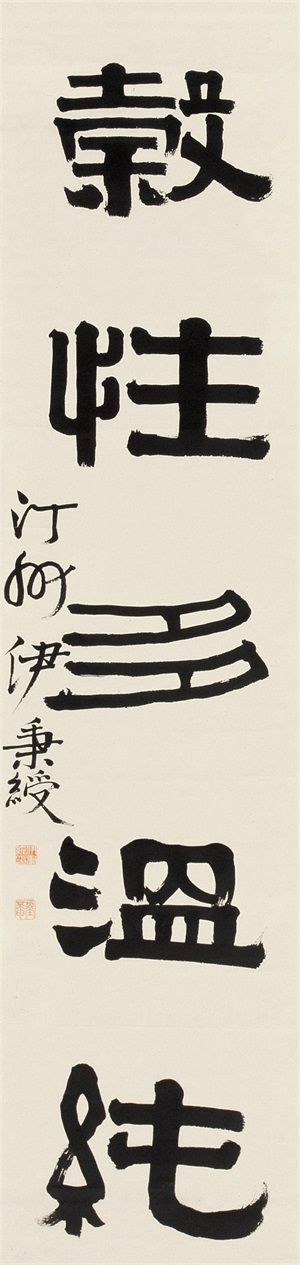 穀性多溫純
汀州伊秉綬